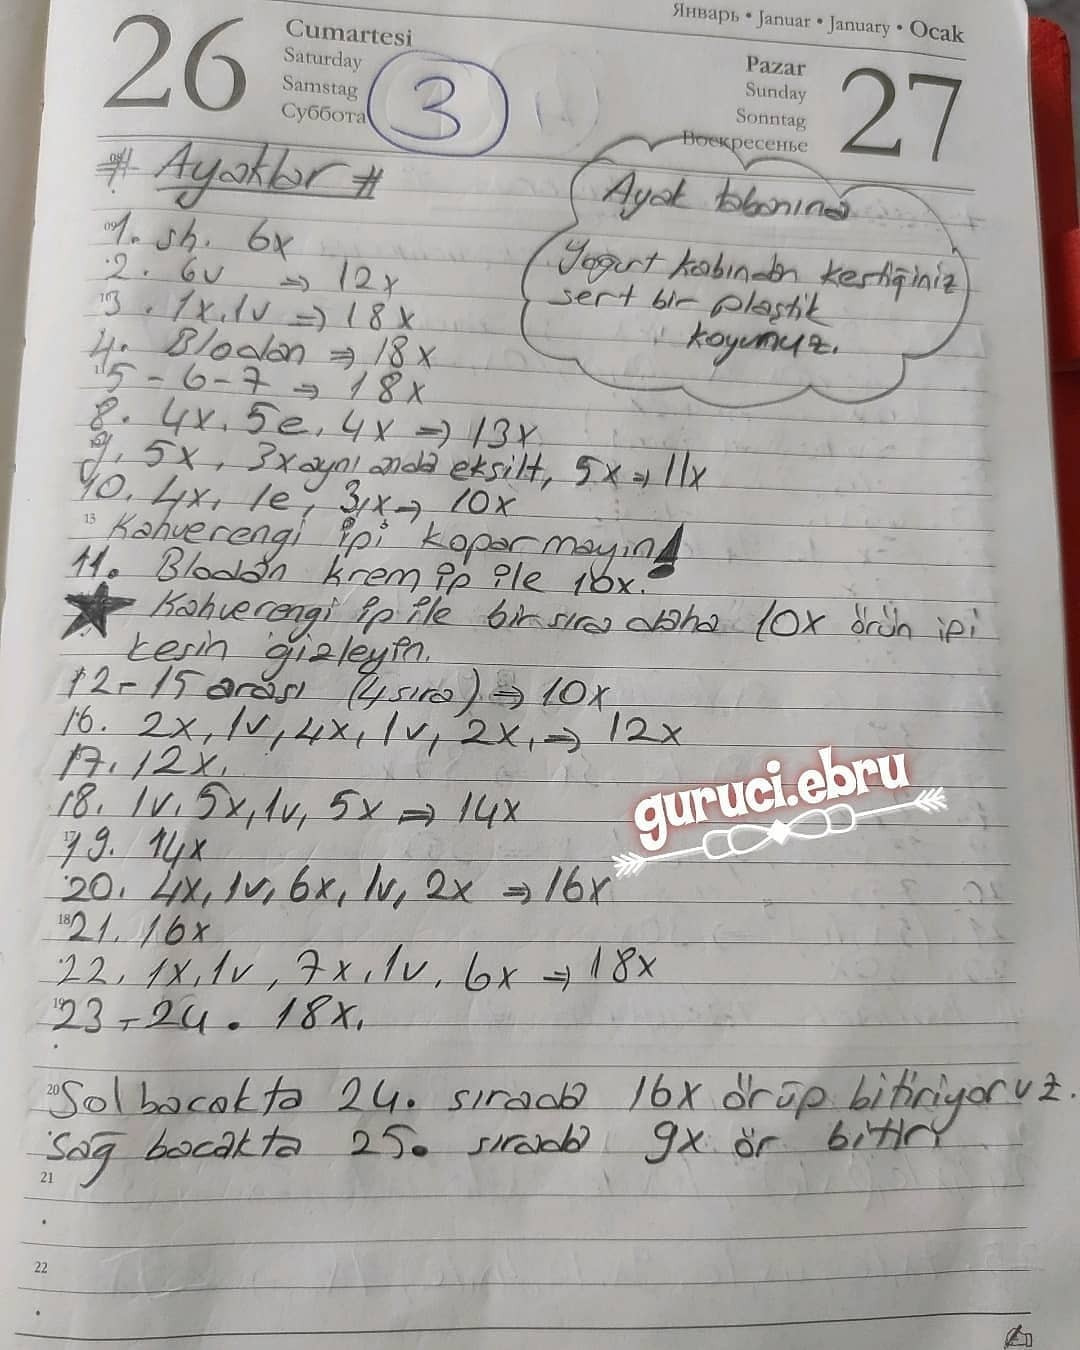 Январь • Januar • January • Ocak
26
Cumartesi
Saturday
Samstag
Суббота
3
Pazar
Sunday
Sonntag
Воскресенье
27
# Ayaklar #
Ayak tabanına
Yoğurt kabından kestiğiniz
sert bir plastik
koyunuz.
1. sh. 6x
2. 6v ⇒ 12x
3. 1x, 1v ⇒ 18x
4. Blodan ⇒ 18x
5-6-7 ⇒ 18x
8. 4x, 5e, 4x ⇒ 13x
9. 5x, 3x aynı anda eksilt, 5x ⇒ 11x
10. 4x, 1e, 3x ⇒ 10x
13
Kahverengi ipi koparmayın!
11. Blodan krem ip ile 10x.
★ Kahverengi ip ile bir sıra daha 10x örün ipi
kesin gizleyin.
12-15 arası (4 sıra) ⇒ 10x
16. 2x, 1v, 4x, 1v, 2x, ⇒ 12x
17. 12x.
18. 1v, 5x, 1v, 5x ⇒ 14x
guruci.ebru
19. 14x
20. 4x, 1v, 6x, 1v, 2x ⇒ 16x
18
21. 16x
22. 1x, 1v, 7x, 1v, 6x ⇒ 18x
19
23-24. 18x.
20
Sol bacakta 24. sırada 16x örüp bitiriyoruz.
Sağ bacakta 25. sırada 9x ör bitir
21
22